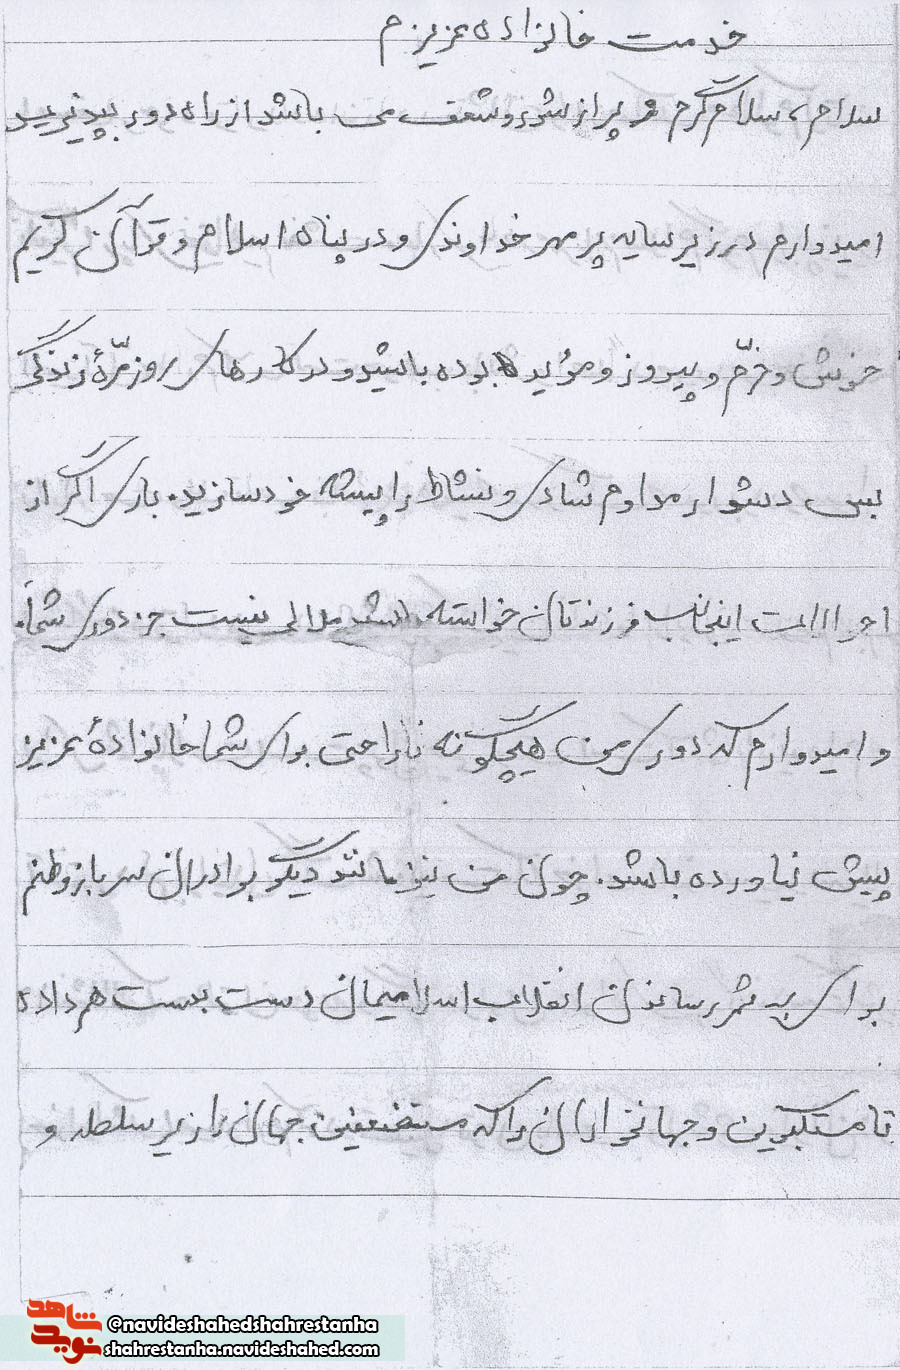 خدمت خانواده عزیزم
سلام، سلام گرم و پر از شور و شعف می باشد از راه دور بپذیرید
امیدوارم در زیر سایه پر مهر خداوندی و در پناه اسلام و قرآن کریم
خوش و خرّم و پیروز و مؤید بوده باشید و در کارهای روزمرّهٔ زندگی
بس دشوار مداوم شادی و نشاط را پیشه خود سازید. باری اگر از
احوالات اینجانب فرزندتان خواسته باشید ملالی نیست جز دوری شما.
و امیدوارم که دوری من هیچگونه ناراحتی برای شما خانوادهٔ عزیز
پیش نیاورده باشد. چون من نیز مانند دیگر برادران سرباز وطنم
برای به ثمر رساندن انقلاب اسلامیمان دست بدست هم داده
تا مستکبرین و جهانخواران را که مستضعفین جهان را زیر سلطه و
شاهد
نوید
@navideshahedshahrestanha
shahrestanha.navideshahed.com